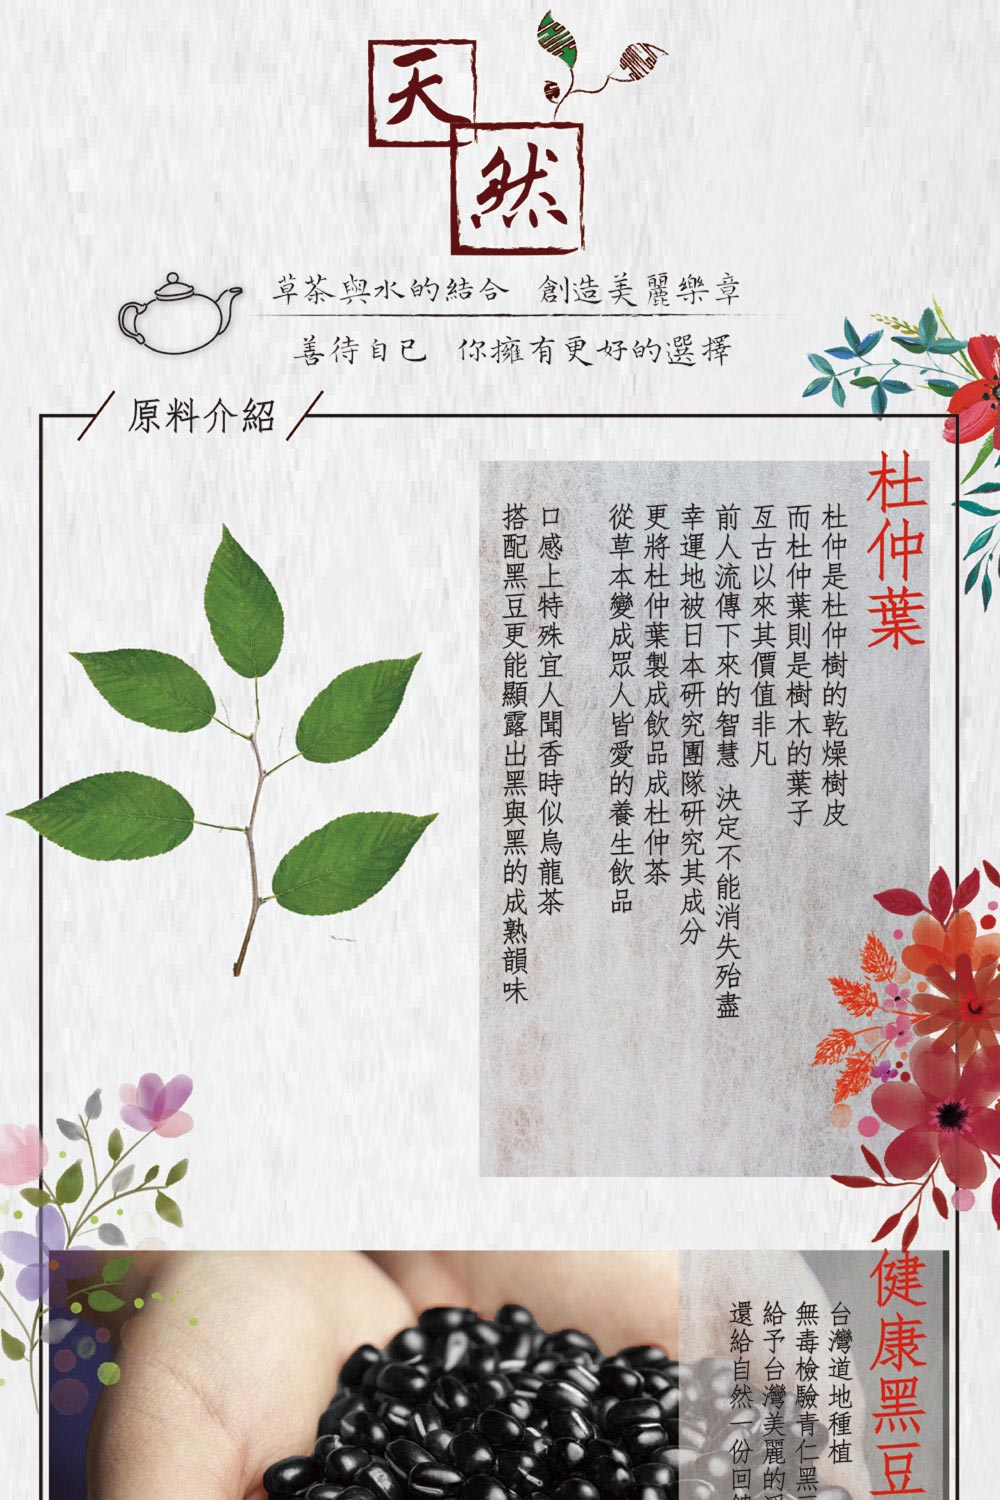 天然
草茶與水的結合 創造美麗樂章
善待自已 你擁有更好的選擇
原料介紹
杜仲葉
杜仲是杜仲樹的乾燥樹皮
而杜仲葉則是樹木的葉子
亙古以來其價值非凡
前人流傳下來的智慧 決定不能消失殆盡
幸運地被日本研究團隊研究其成分
更將杜仲葉製成飲品成杜仲茶
從草本變成眾人皆愛的養生飲品
口感上特殊宜人聞香時似烏龍茶
搭配黑豆更能顯露出黑與黑的成熟韻味
健康黑豆
台灣道地種植
無毒檢驗青仁黑
給予台灣美麗的
還給自然一份回